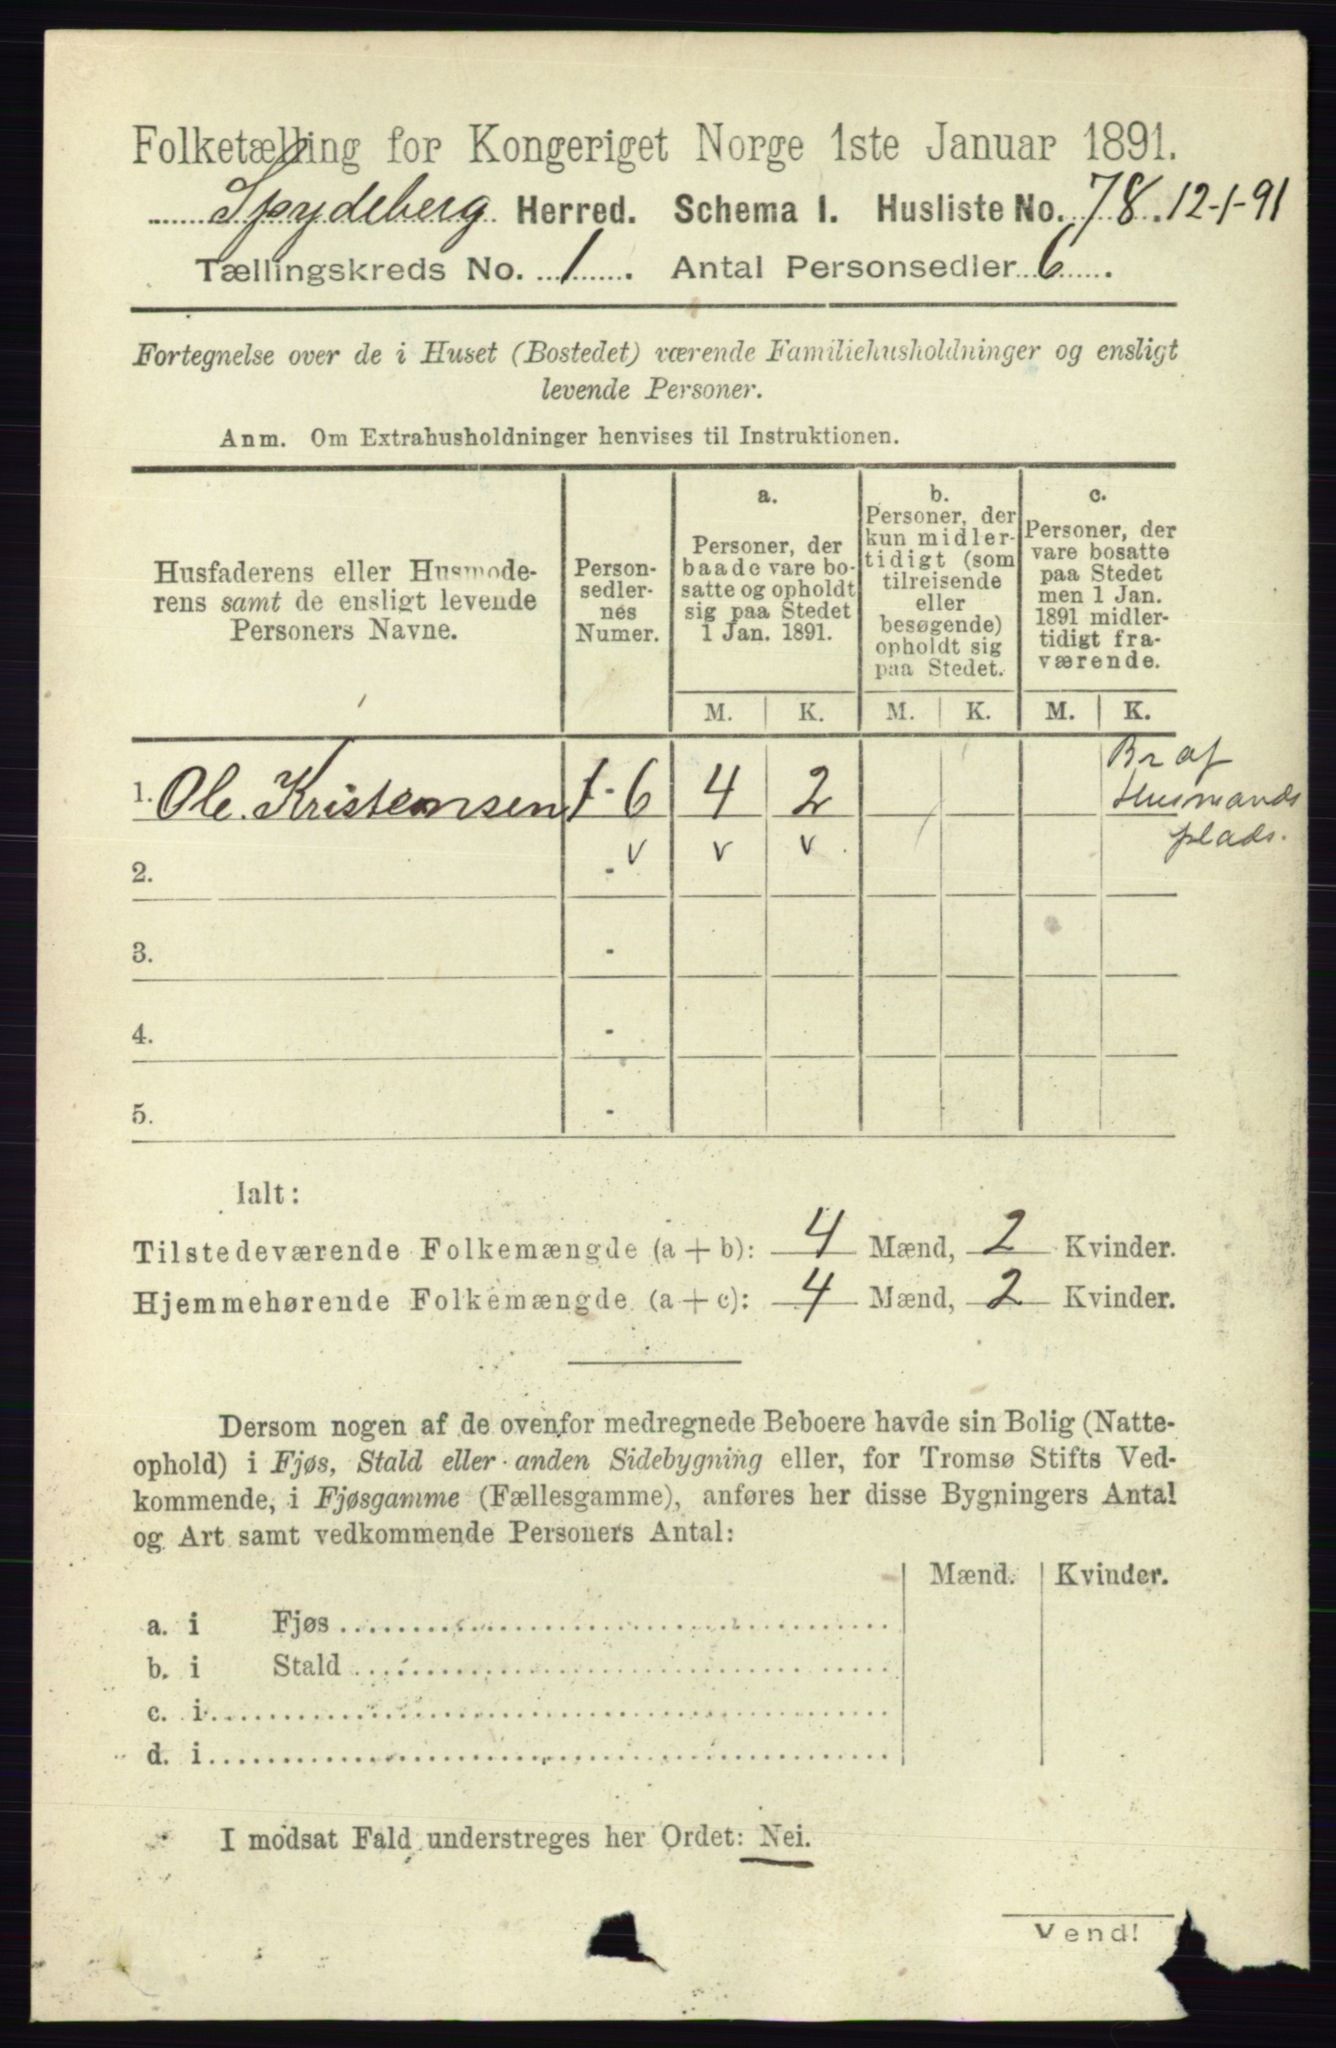 Folketælling for Kongeriget Norge 1ste Januar 1891.
Spydeberg Herred. Schema I. Husliste No. 78. 12-1-91
Tællingskreds No. 1. Antal Personsedler 6.
Fortegnelse over de i Huset (Bostedet) værende Familiehusholdninger og ensligt
levende Personer.
Anm. Om Extrahusholdninger henvises til Instruktionen.
Husfaderens eller Husmode-
rens samt de ensligt levende
Personers Navne.
Person-
sedler-
nes
Numer.
a.
Personer, der
baade vare bo-
satte og opholdt
sig paa Stedet
1 Jan. 1891.
b.
Personer, der
kun midler-
tidigt (som
tilreisende
eller
besøgende)
opholdt sig
paa Stedet.
c.
Personer, der
vare bosatte
paa Stedet
men 1 Jan.
1891 midler-
tidigt fra-
værende.
M. K. M. K. M. K.
1. Ole Kristensen 1-6 4 2
Br af
Husmands
plads.
v v v
2. -
3. -
4. -
5. -
Ialt:
Tilstedeværende Folkemængde (a + b): 4 Mænd, 2 Kvinder.
Hjemmehørende Folkemængde (a + c): 4 Mænd, 2 Kvinder.
Dersom nogen af de ovenfor medregnede Beboere havde sin Bolig (Natte-
ophold) i Fjøs, Stald eller anden Sidebygning eller, for Tromsø Stifts Ved-
kommende, i Fjøsgamme (Fællesgamme), anføres her disse Bygningers Antal
og Art samt vedkommende Personers Antal:
Mænd. Kvinder.
a. i Fjøs
b. i Stald
c. i
d. i
I modsat Fald understreges her Ordet: Nei.
Vend!